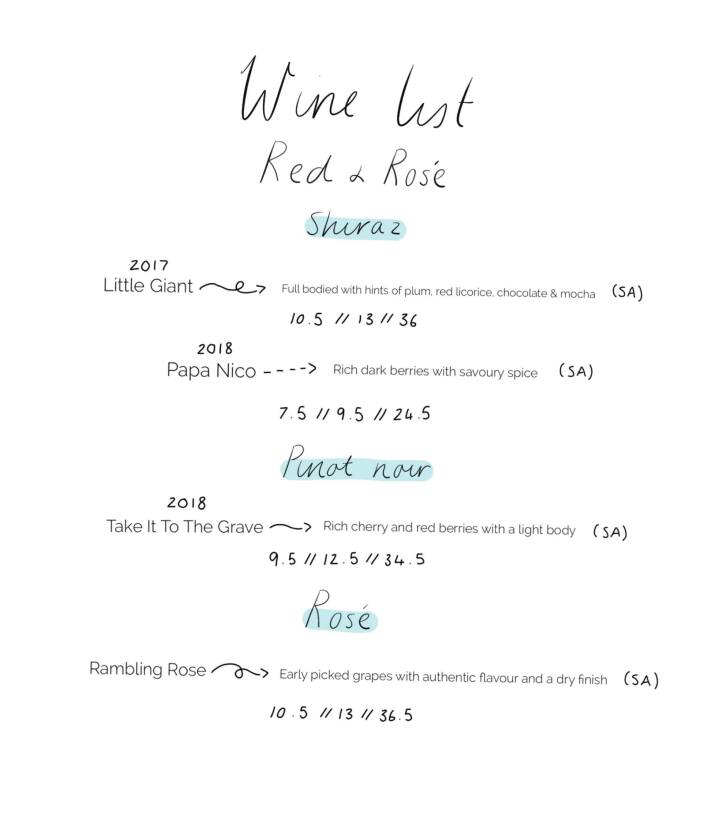 Wine list
Red & Rosé
Shiraz
2017
Little Giant Full bodied with hints of plum, red licorice, chocolate & mocha (SA)
10.5 // 13 // 36
2018
Papa Nico ----> Rich dark berries with savoury spice (SA)
7.5 // 9.5 // 24.5
Pinot noir
2018
Take It To The Grave Rich cherry and red berries with a light body (SA)
9.5 // 12.5 // 34.5
Rosé
Rambling Rose Early picked grapes with authentic flavour and a dry finish (SA)
10.5 // 13 // 36.5